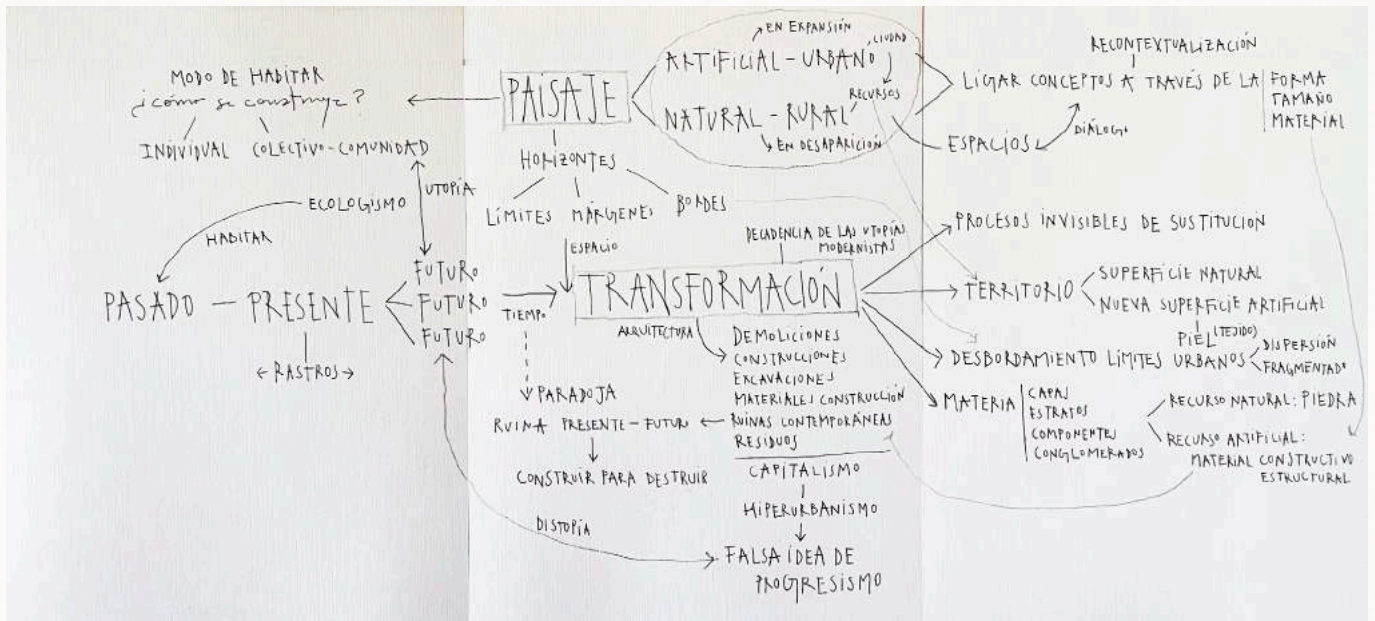 MODO DE HABITAR
¿cómo se construye?
INDIVIDUAL COLECTIVO-COMUNIDAD
UTOPÍA
ECOLOGISMO
HABITAR
PASADO — PRESENTE
FUTURO
FUTURO
FUTURO
← RASTROS →
PAISAJE
EN EXPANSIÓN
ARTIFICIAL - URBANO
CIUDAD
RECURSOS
NATURAL - RURAL
EN DESAPARICIÓN
HORIZONTES
LÍMITES MÁRGENES BORDES
ESPACIO
DECADENCIA DE LAS UTOPÍAS
MODERNISTAS
TIEMPO
TRANSFORMACIÓN
ARQUITECTURA
DEMOLICIONES
CONSTRUCCIONES
EXCAVACIONES
MATERIALES CONSTRUCCIÓN
RUINAS CONTEMPORÁNEAS
RESIDUOS
PARADOJA
RUINA PRESENTE-FUTUR
CONSTRUIR PARA DESTRUIR
CAPITALISMO
HIPERURBANISMO
DISTOPÍA
FALSA IDEA DE
PROGRESISMO
RECONTEXTUALIZACIÓN
LIGAR CONCEPTOS A TRAVÉS DE LA
FORMA
TAMAÑO
MATERIAL
ESPACIOS
DIÁLOGO
PROCESOS INVISIBLES DE SUSTITUCIÓN
TERRITORIO
SUPERFICIE NATURAL
NUEVA SUPERFICIE ARTIFICIAL
PIEL (TEJIDO)
DESBORDAMIENTO LÍMITES URBANOS
DISPERSIÓN
FRAGMENTADO
MATERIA
CAPAS
ESTRATOS
COMPONENTES
CONGLOMERADOS
RECURSO NATURAL: PIEDRA
RECURSO ARTIFICIAL:
MATERIAL CONSTRUCTIVO
ESTRUCTURAL